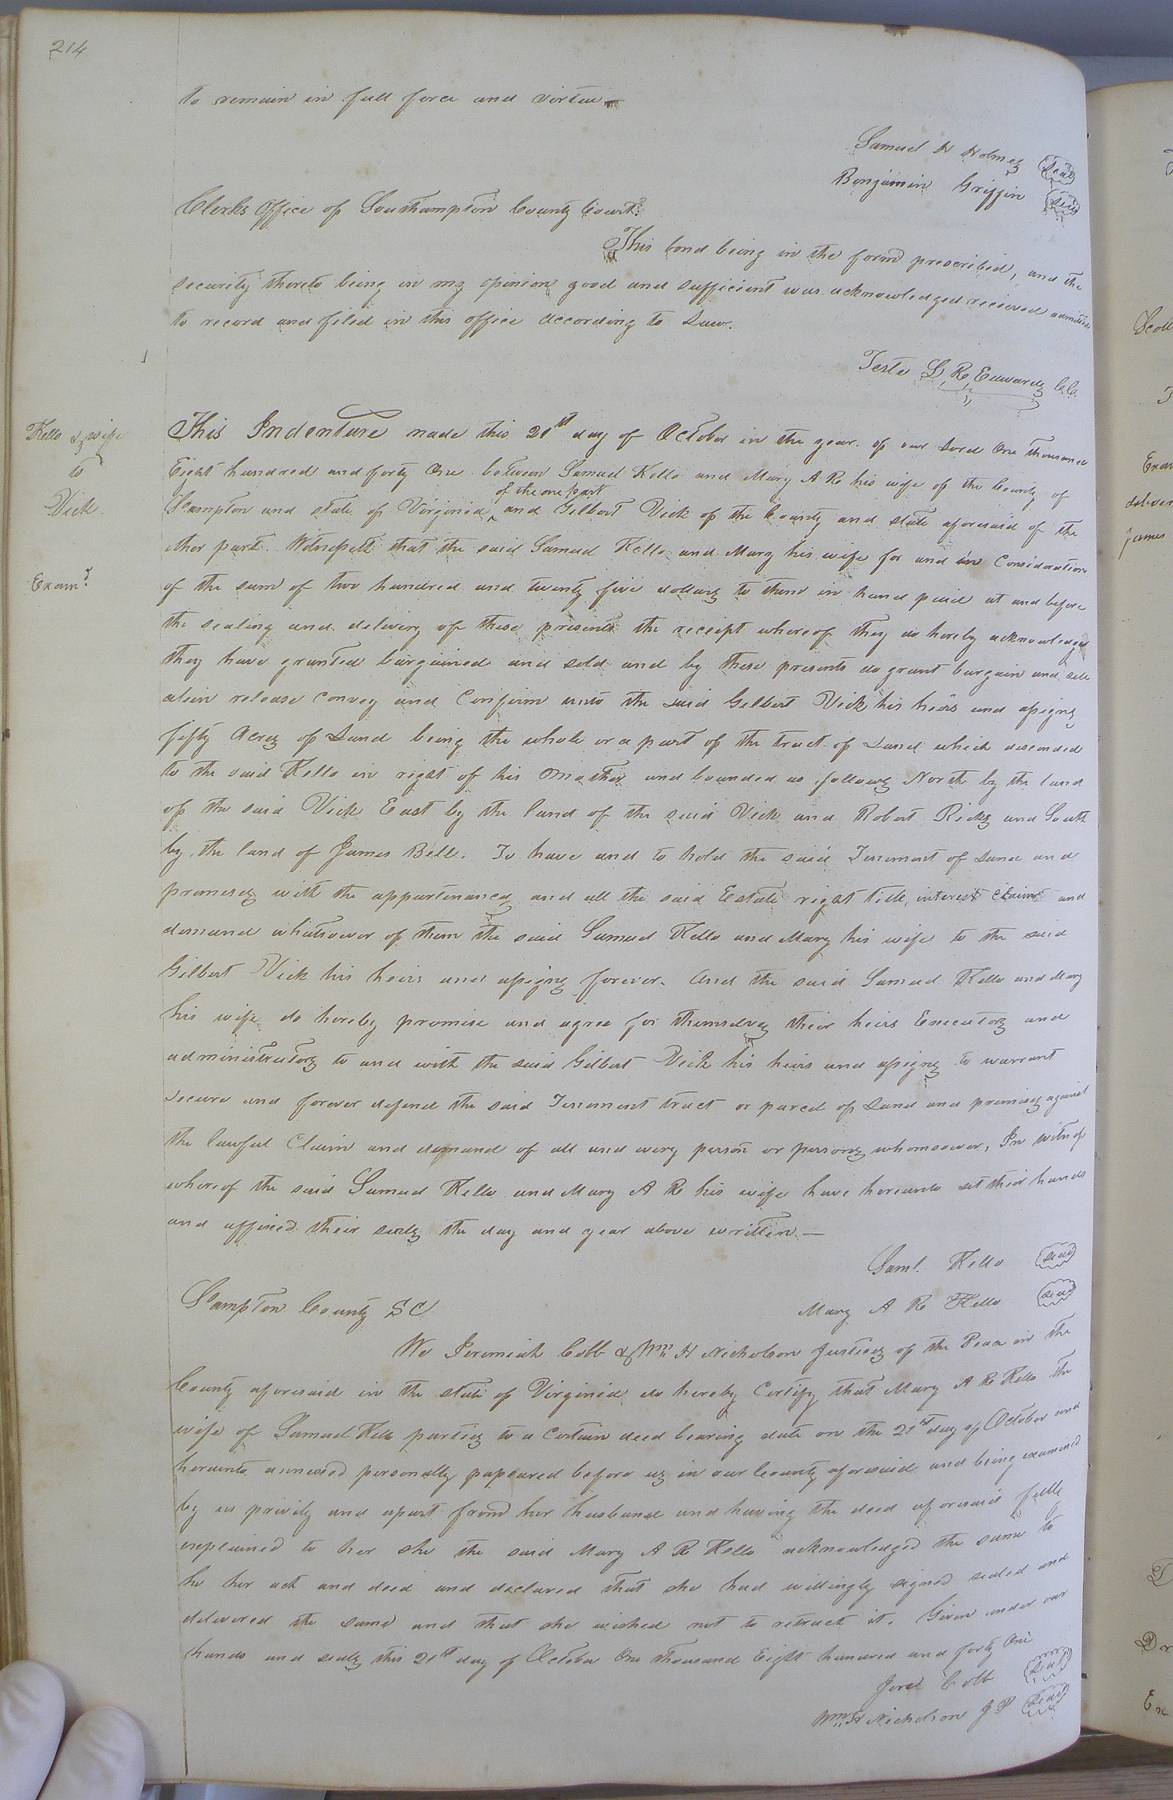 214
to remain in full force and virtue
Samuel H Holmes Seal
Benjamin Griffin Seal
Clerks Office of Southampton County Court:
This bond being in the form prescribed, and the
security thereto being in my opinion good and sufficient was acknowledged received admitted
to record and filed in this office according to Law.
Teste L. R. Edwards C.C.
Kello & wife
to
Vick.
Examd.
This Indenture made this 21st day of October in the year of our Lord One thousand
Eight hundred and forty One between Samuel Kello and Mary A R his wife of the County of
of the one part
SHampton and state of Virginia ^ and Gilbert Vick of the County and state aforesaid of the
other part. Witnesseth that the said Samuel Kello and Mary his wife for and in Consideration
of the sum of two hundred and twenty five dollars to them in hand paid at and before
the sealing and delivery of these presents the receipt whereof they do hereby acknowledged
they have granted bargained and sold and by these presents do grant bargain and sell
alien release convey and Confirm unto the said Gilbert Vick his heirs and assigns
fifty Acres of Land being the whole or a part of the tract of Land which descended
to the said Kello in right of his Mother and bounded as follows North by the land
of the said Vick East by the land of the said Vick and Robert Ricks and South
by the land of James Bell. To have and to hold the said Tenement of Land and
premises with the appurtenances and all the said Estate right title, interest Claim and
demand whatsoever of them the said Samuel Kello and Mary his wife to the said
Gilbert Vick his heirs and assigns forever. And the said Samuel Kello and Mary
his wife do hereby promise and agree for themselves their heirs Executors and
administrators to and with the said Gilbert Vick his heirs and assigns to warrant
secure and forever defend the said Tenement tract or parcel of Land and premises against
the lawful Claim and demand of all and every person or persons whomsoever, In witness
whereof the said Samuel Kello and Mary A R his wife have hereunto set their hands
and affixed their seals the day and year above written.—
Saml. Kello seal
Mary A R Kello seal
SHampton County SC
We Jeremiah Cobb & Wm H Nicholson Justices of the Peace in the
County aforesaid in the state of Virginia do hereby Certify that Mary A R Kello the
wife of Samuel Kello parties to a Certain deed bearing date on the 21st day of October and
hereunto annexed personally papeared before us in our County aforesaid and being examined
by us privily and apart from her husband and having the deed aforesaid fully
explained to her she the said Mary A R Kello acknowledged the same to
be her act and deed and declared that she had willingly signed sealed and
delivered the same and that she wished not to retract it. Given under our
hands and seals this 21st day of October One thousand Eight hundred and forty One
Jere Cobb Seal
Wm. H Nicholson J P Seal